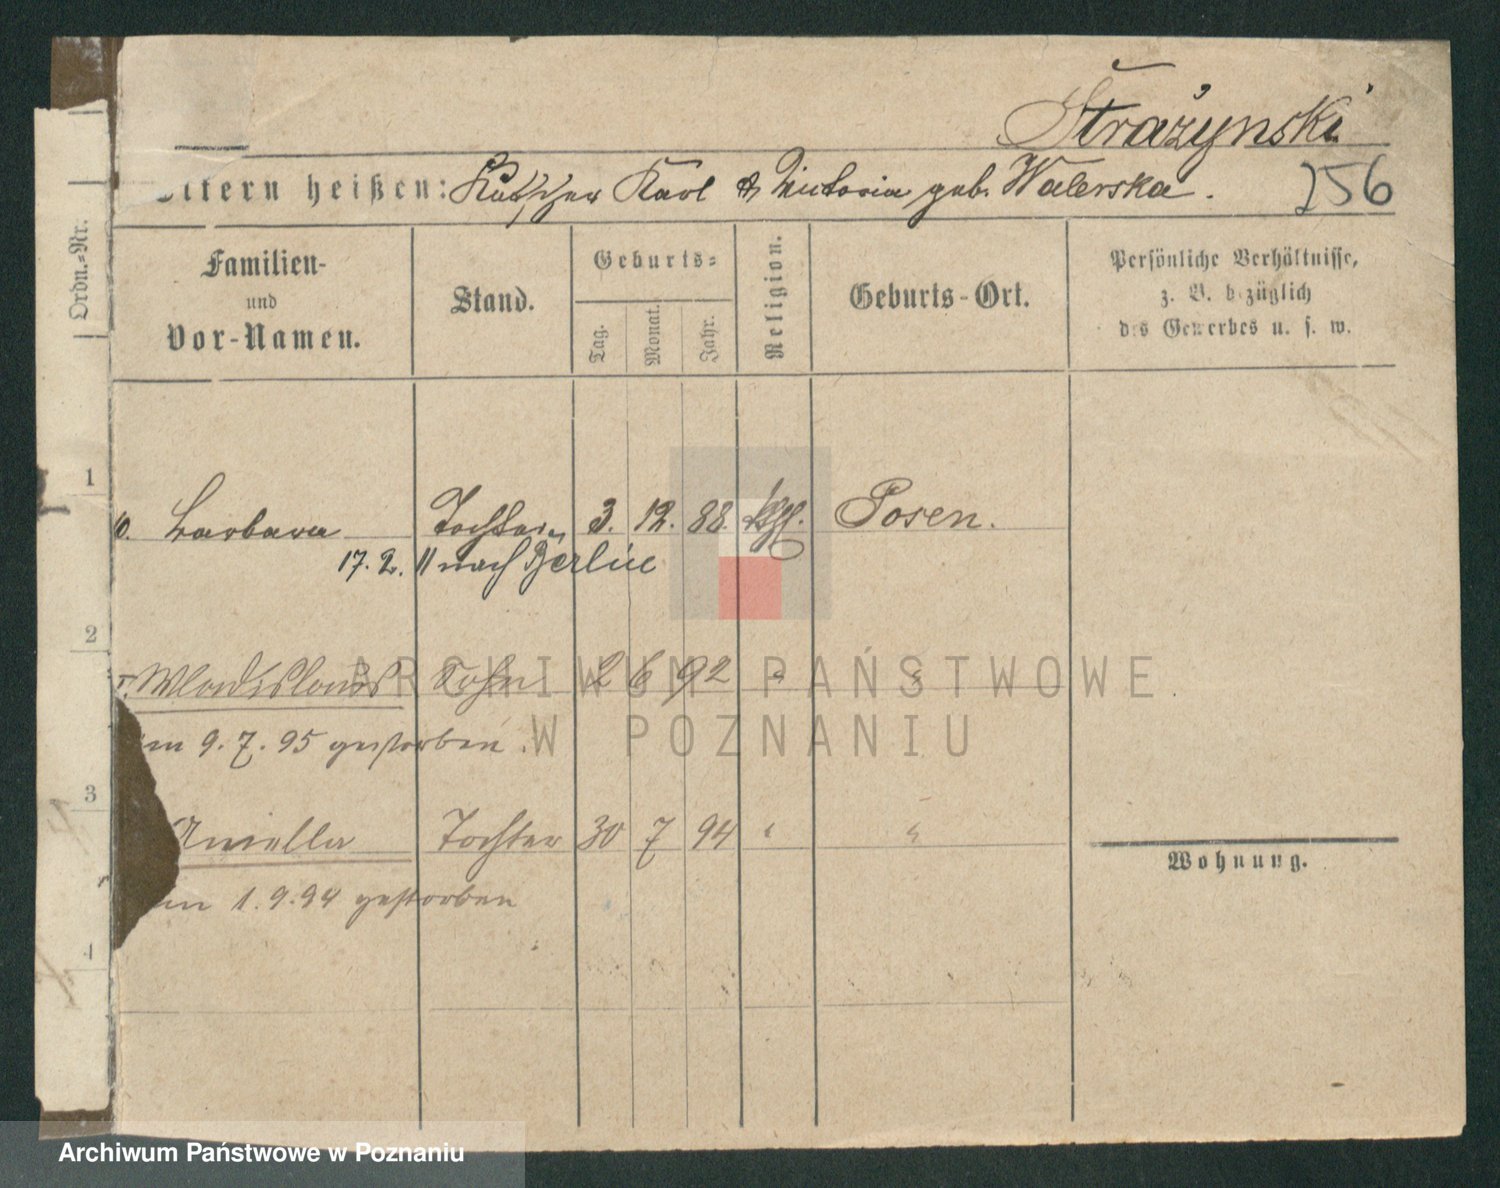 Strażynski
Eltern heißen: Kutscher Karl & Victoria geb. Walerska.
256
Ordn.-Nr.
Familien-
und
Vor-Namen.
Stand.
Geburts-
Tag.
Monat.
Jahr.
Religion.
Geburts-Ort.
Persönliche Verhältnisse,
z. B. bezüglich
des Gewerbes u. s. w.
1
Barbara Tochter 3. 12. 88. kath. Posen.
17. 2. 11 nach Berlin
2
Wladislaus Sohn 2 6 92 " "
am 9. 7. 95 gestorben.
3
Aniella Tochter 30 7 94 " "
am 1. 9. 94 gestorben
Wohnung.
4
ARCHIWUM PAŃSTWOWE
W POZNANIU
Archiwum Państwowe w Poznaniu